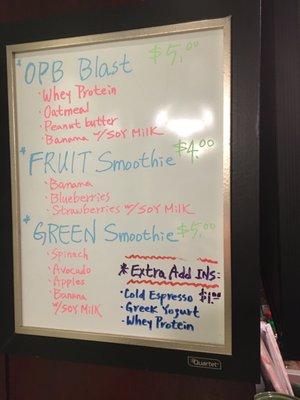 * OPB Blast $5.00
· Whey Protein
· Oatmeal
· Peanut butter
· Banana w/SOY MILK
* FRUIT Smoothie $4.00
· Banana
· Blueberries
· Strawberries w/SOY MILK
* GREEN Smoothie $5.00
· Spinach
· Avocado
· Apples
· Banana
w/SOY MILK
* Extra Add INS:
· Cold Espresso $1.00
· Greek Yogurt
· Whey Protein
Quartet